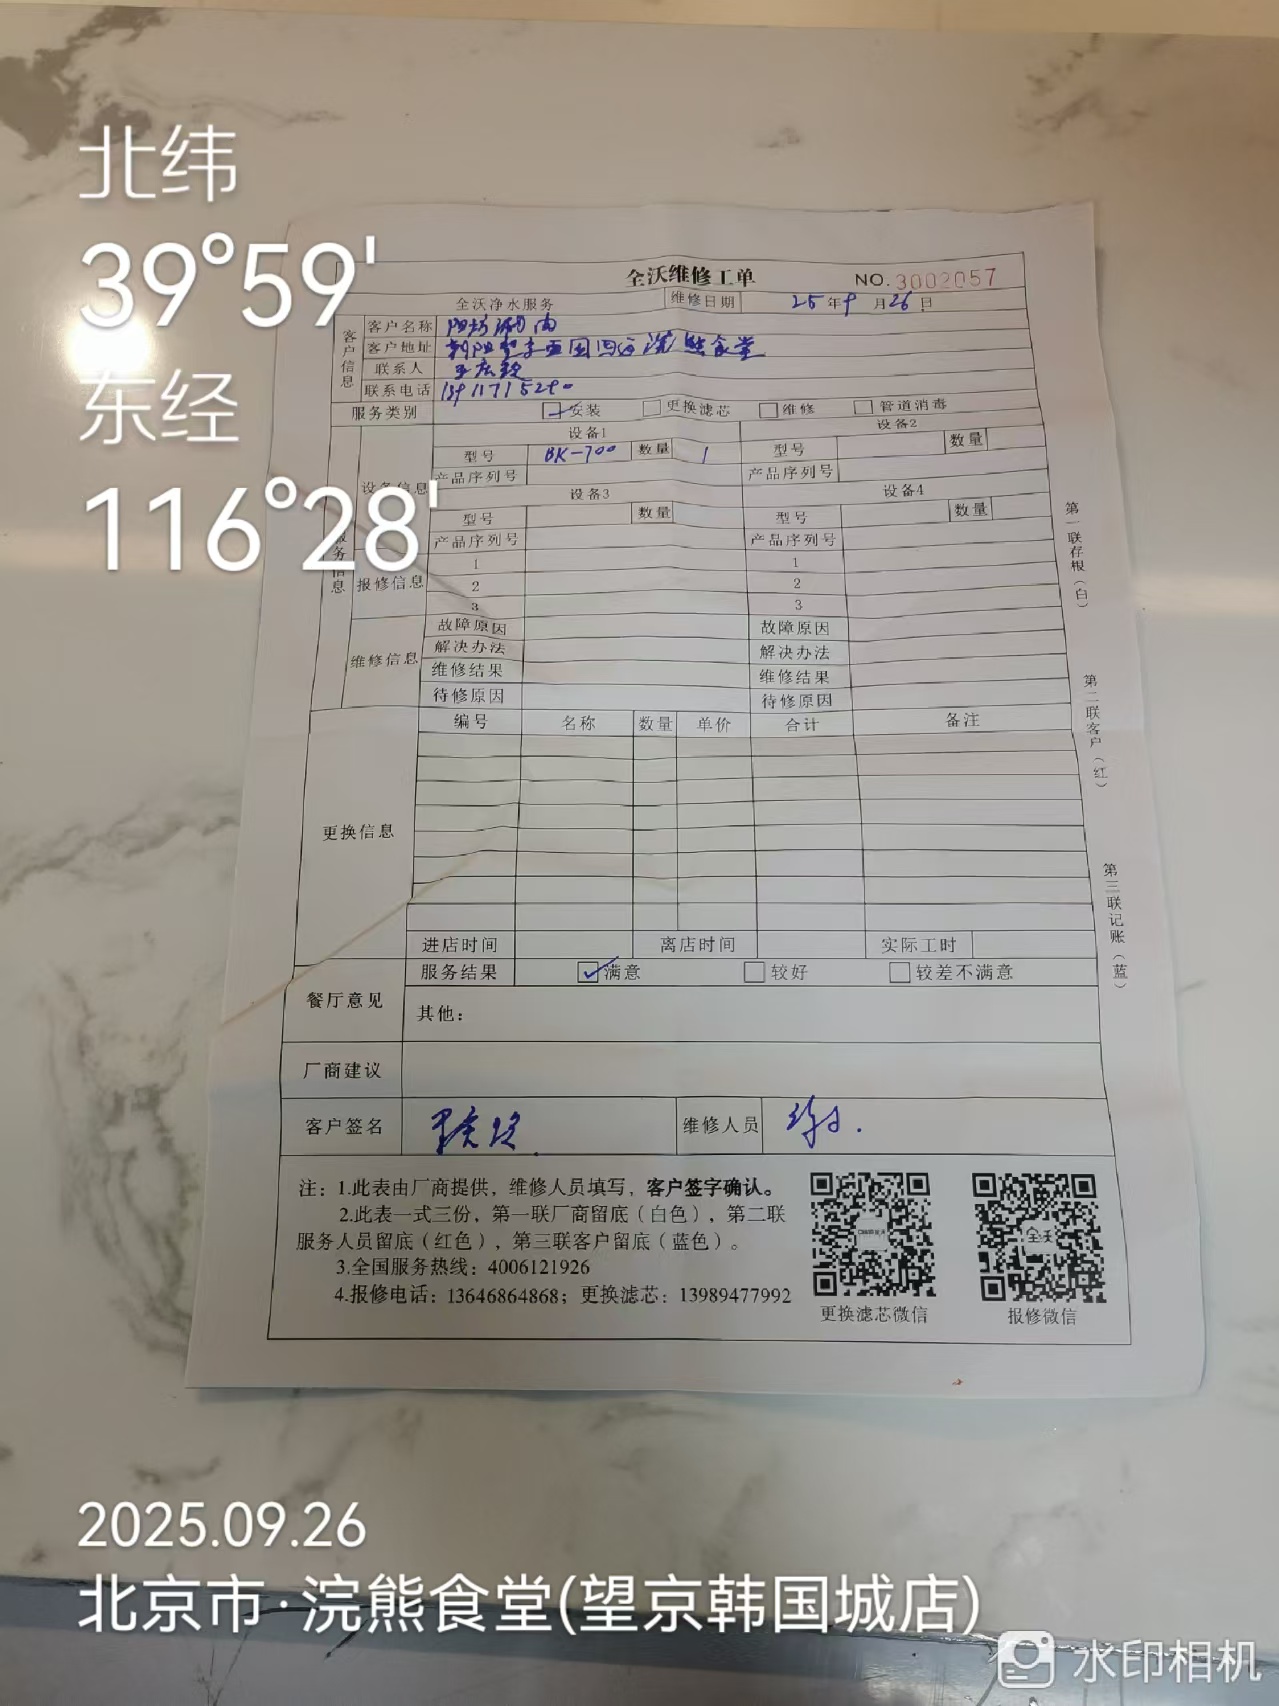 北纬
39°59'
东经
116°28'
全沃维修工单 NO.3002057
全沃净水服务 维修日期 25年9月26日
客户信息
客户名称 阳坊涮肉
客户地址 浣熊食堂
联系人
联系电话
服务类别 安装 更换滤芯 维修 管道消毒
服务信息
设备信息
设备1 设备2
型号 BK-700 数量 1 型号 数量
产品序列号 产品序列号
设备3 设备4
型号 数量 型号 数量
产品序列号 产品序列号
报修信息
1 1
2 2
3 3
维修信息
故障原因 故障原因
解决办法 解决办法
维修结果 维修结果
待修原因 待修原因
更换信息
编号 名称 数量 单价 合计 备注
进店时间 离店时间 实际工时
餐厅意见
服务结果 满意 较好 较差不满意
其他：
厂商建议
客户签名 维修人员
注：1.此表由厂商提供，维修人员填写，客户签字确认。
2.此表一式三份，第一联厂商留底（白色），第二联
服务人员留底（红色），第三联客户留底（蓝色）。
3.全国服务热线：4006121926
4.报修电话：13646864868；更换滤芯：13989477992
更换滤芯微信
全沃
报修微信
第一联存根（白）
第二联客户（红）
第三联记账（蓝）
2025.09.26
北京市·浣熊食堂(望京韩国城店)
水印相机